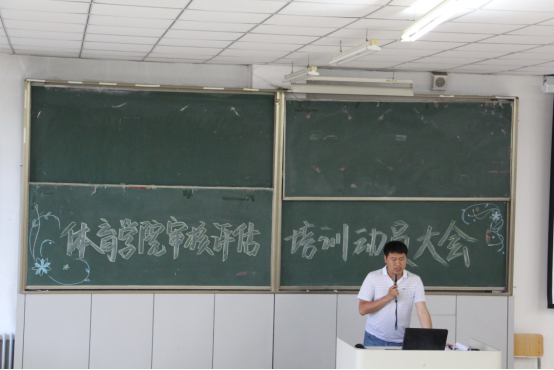 体育学院审核评估 培训动员大会